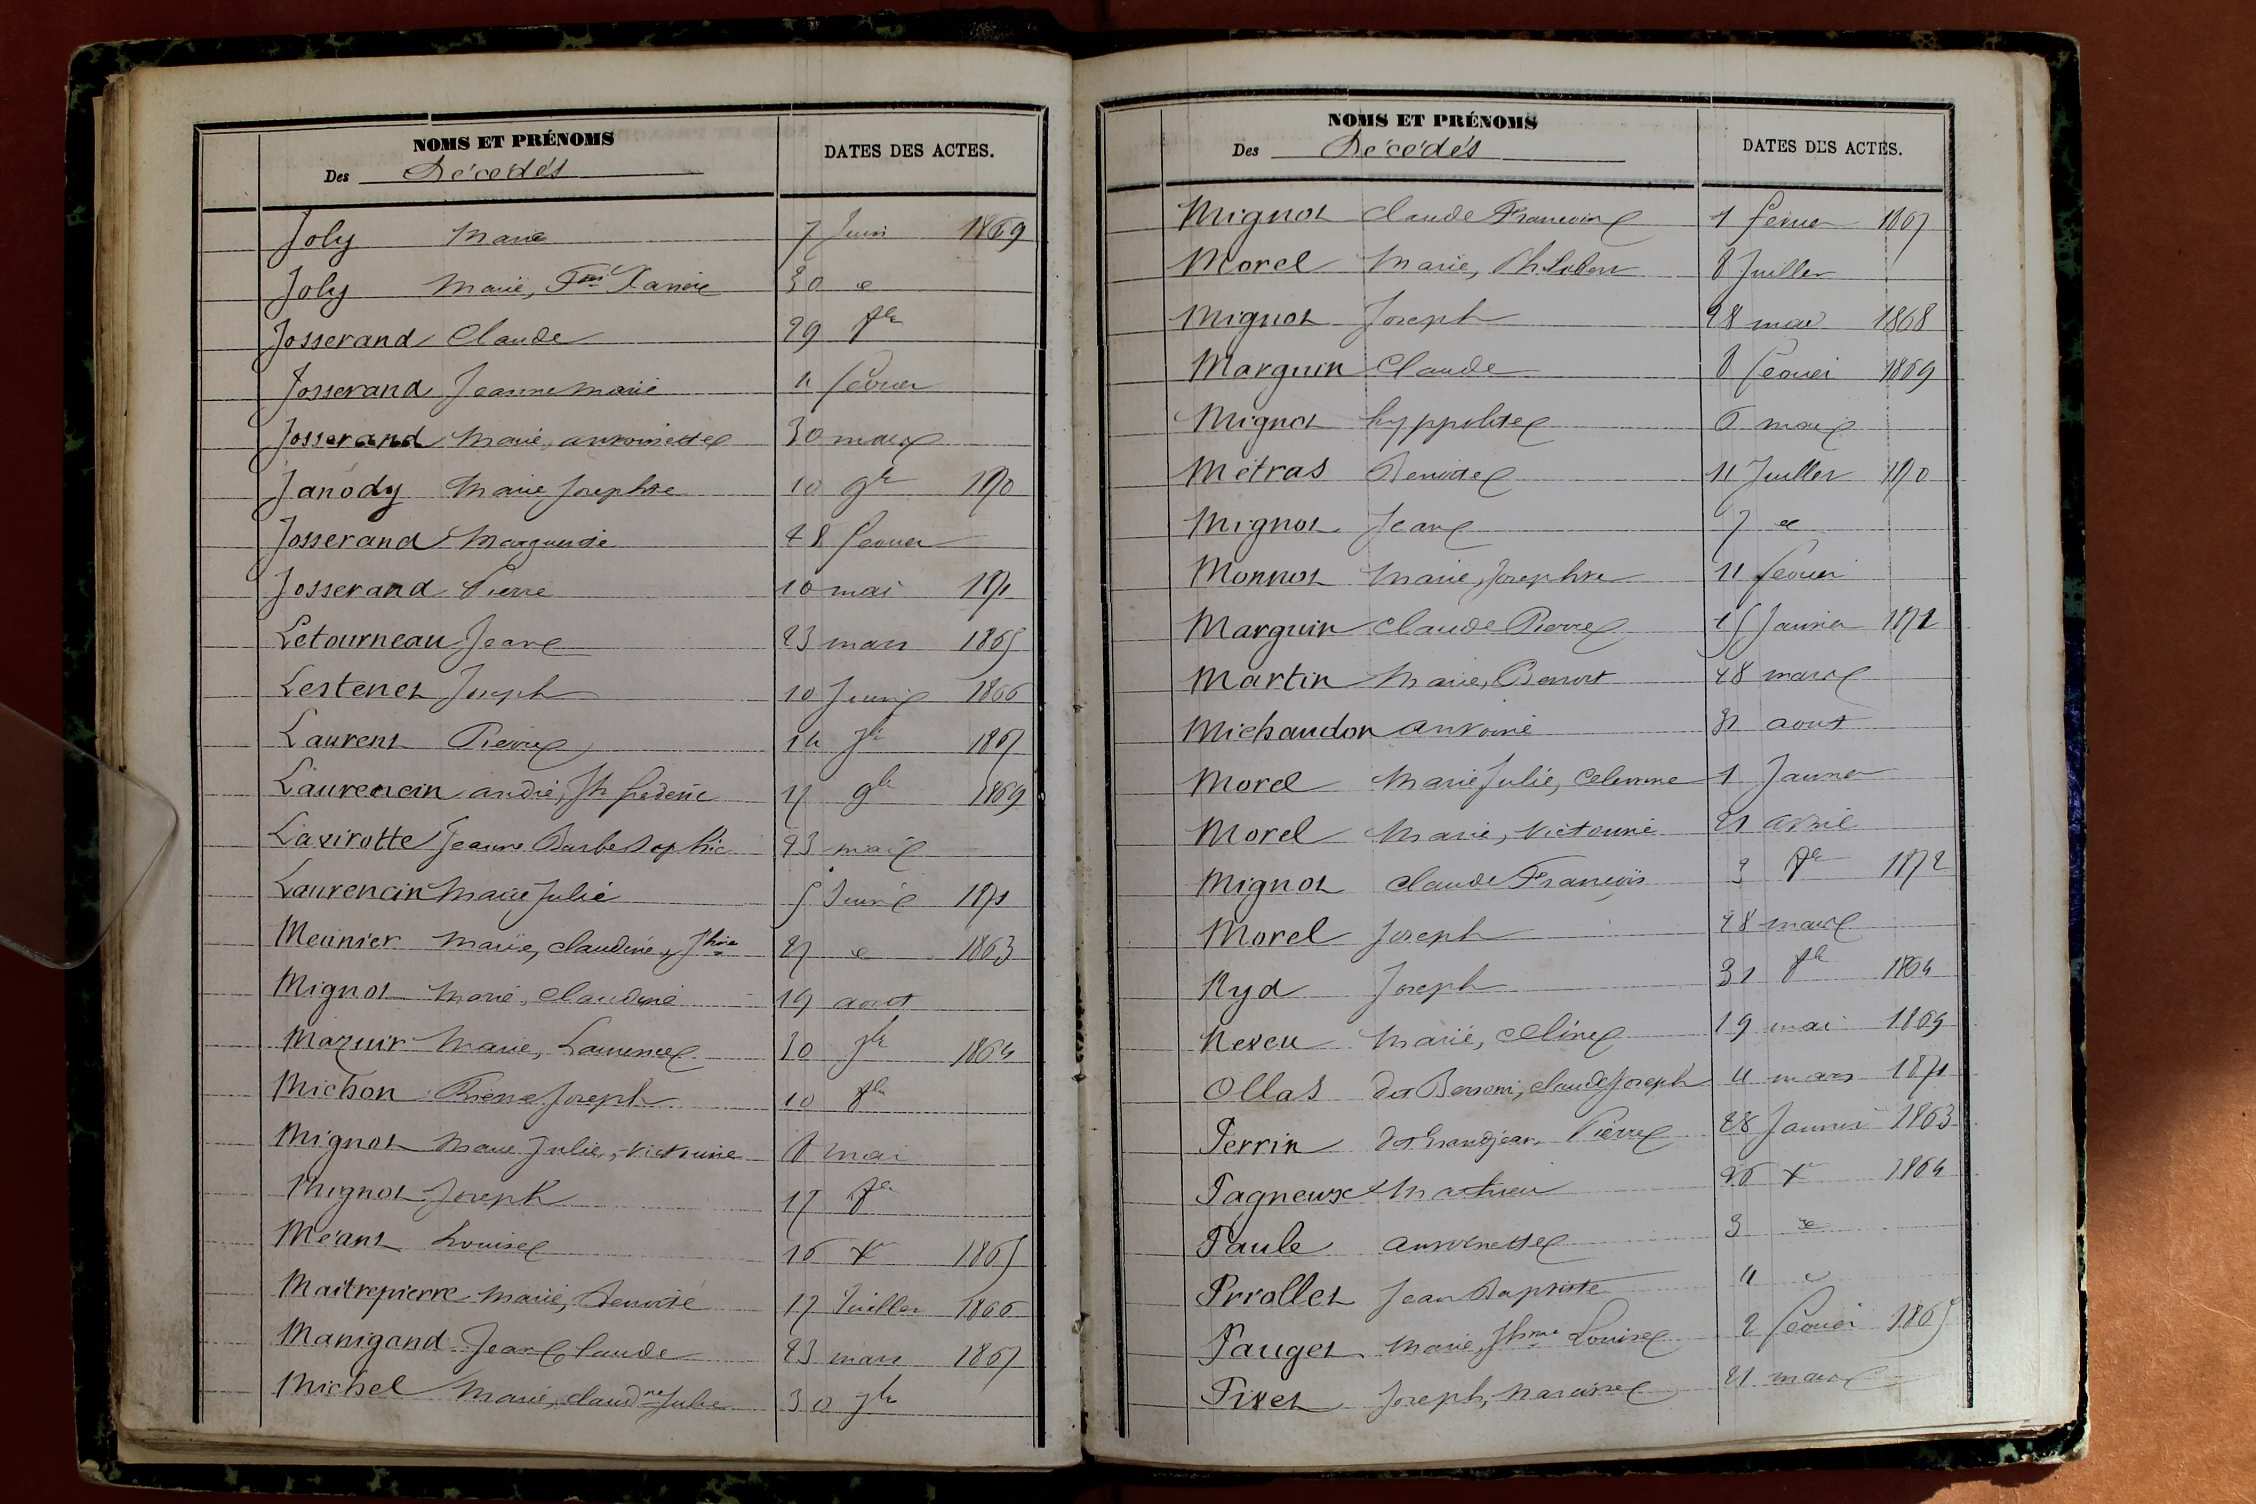 NOMS ET PRÉNOMS
Des Décédés
DATES DES ACTES.
Joly Marie 7 Juin 1869
Joly Marie, Fois Xavière 30 e
Josserand Claude 29
Josserand Jeanne Marie 4 février
Josserand Marie, antoinette 30 mars
Janody Marie Josephte 10 9bre 1870
Josserand Marguerite 28 février
Josserand Pierre 10 mai 1871
Letourneau Jean 23 mars 1865
Lestenet Joseph 10 Juin 1866
Laurent Pierre 14 1867
Laurencin andré, Jh frédéric 17 9bre 1869
Lavirotte Jeanne Barbe Sophie 23 mai
Laurencin Marie Julie 5 Juin 1871
Meunier Marie, claudine, Jhine 27 e 1863
Mignot Marie, Claudine 19 aout
Mazuir Marie, Laurence 30 1864
Michon Pierre Joseph 10
Mignot Marie Julie, Victorine 8 mai
Mignot Joseph 17
Méant Louise 16 1865
Maitrepierre Marie, Benoite 17 Juillet 1866
Manigand Jean Claude 23 mars 1867
Michel Marie, claudne Julie 30
NOMS ET PRÉNOMS
Des Décédés
DATES DES ACTES.
Mignot Claude François 1 février 1867
Morel Marie, Philibert 8 Juillet
Mignot Joseph 28 mars 1868
Marguin Claude 8 février 1869
Mignot hyppolite 6 mai
Métras Benoite 11 Juillet 1870
Mignot Jean 7 e
Monnot Marie, Josephte 11 février
Marguin Claude Pierre 15 Janvier 1871
Martin Marie, Benoit 28 mars
Michaudon antoine 31 aout
Morel Marie Julie, Celestine 1 Janvier
Morel Marie, Victorine 21 avril
Mignot Claude François 3 1872
Morel Joseph 28 mars
Nyd Joseph 31 1864
Neveu Marie, Celine 19 mai 1869
Ollas dit Bersoni, claude Joseph 4 mars 1871
Perrin dit Grandjean Pierre 28 Janvier 1863
Pagneux Mathieu 26 1864
Paule antoinette 3 e
Prrollet Jean Baptiste 4 e
Pauget Marie, Jhine Louise 2 février 1865
Pivet Joseph, Narcisse 21 mars